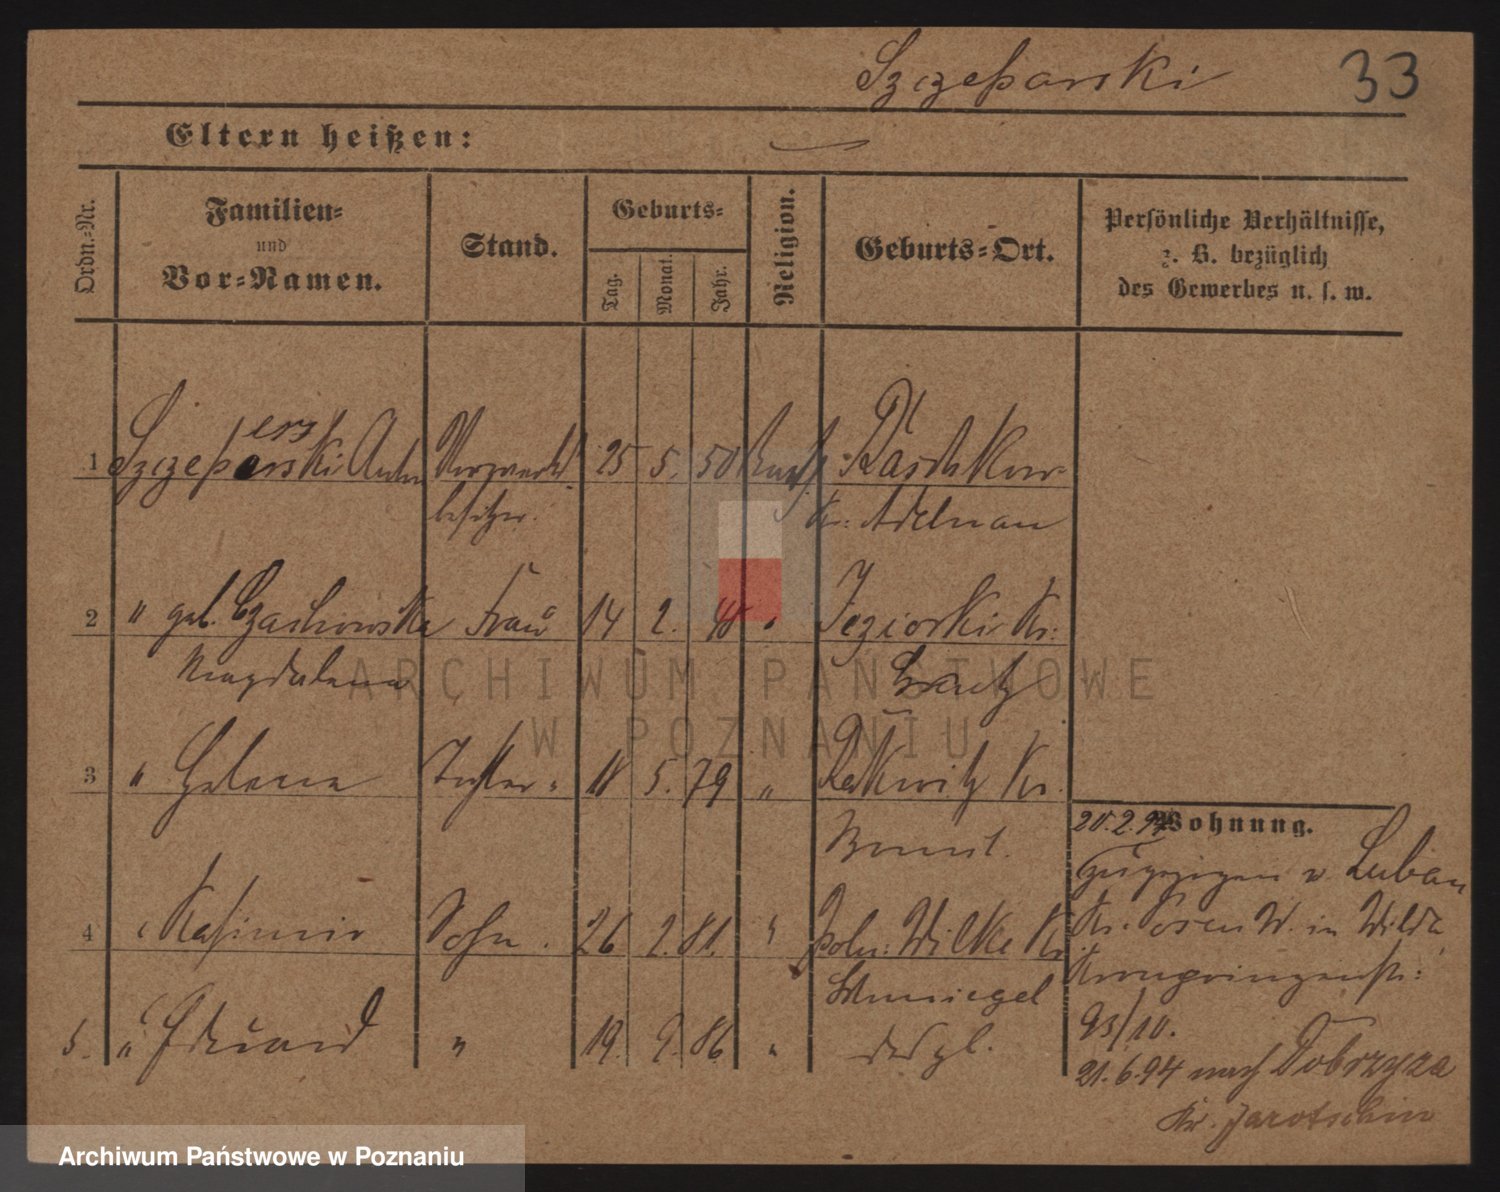 Szczeparski 33
Eltern heißen:
Ordn.-Nr.
Familien-
und
Vor-Namen.
Stand.
Geburts-
Tag.
Monat.
Jahr.
Religion.
Geburts-Ort.
Persönliche Verhältnisse,
z. B. bezüglich
des Gewerbes u. s. w.
ers
1 Szczeparski Anton Vorwerks 25 5. 50 Kath. Raschkow
besitzer. Kr: Adelnau
2 " geb. Czachowska Frau 14 2. " Jeziorki Kr:
Magdalena
3 " Helena Tochter 18 5. 79 " Kr.
Bomst.
4 " Kasimir Sohn. 26 2. 81. " Poln: Wilke Kr
Schmiegel
5. " Eduard " 19. 9. 86 " desgl.
Wohnung.
20.2.94
zugezogen v. Luban
Kr. Posen W. in Wilda
Kronprinzenstr:
93/10.
21.6.94 nach Dobrzyca
Kr. Jarotschin
ARCHIWUM PAŃSTWOWE
W POZNANIU
Archiwum Państwowe w Poznaniu